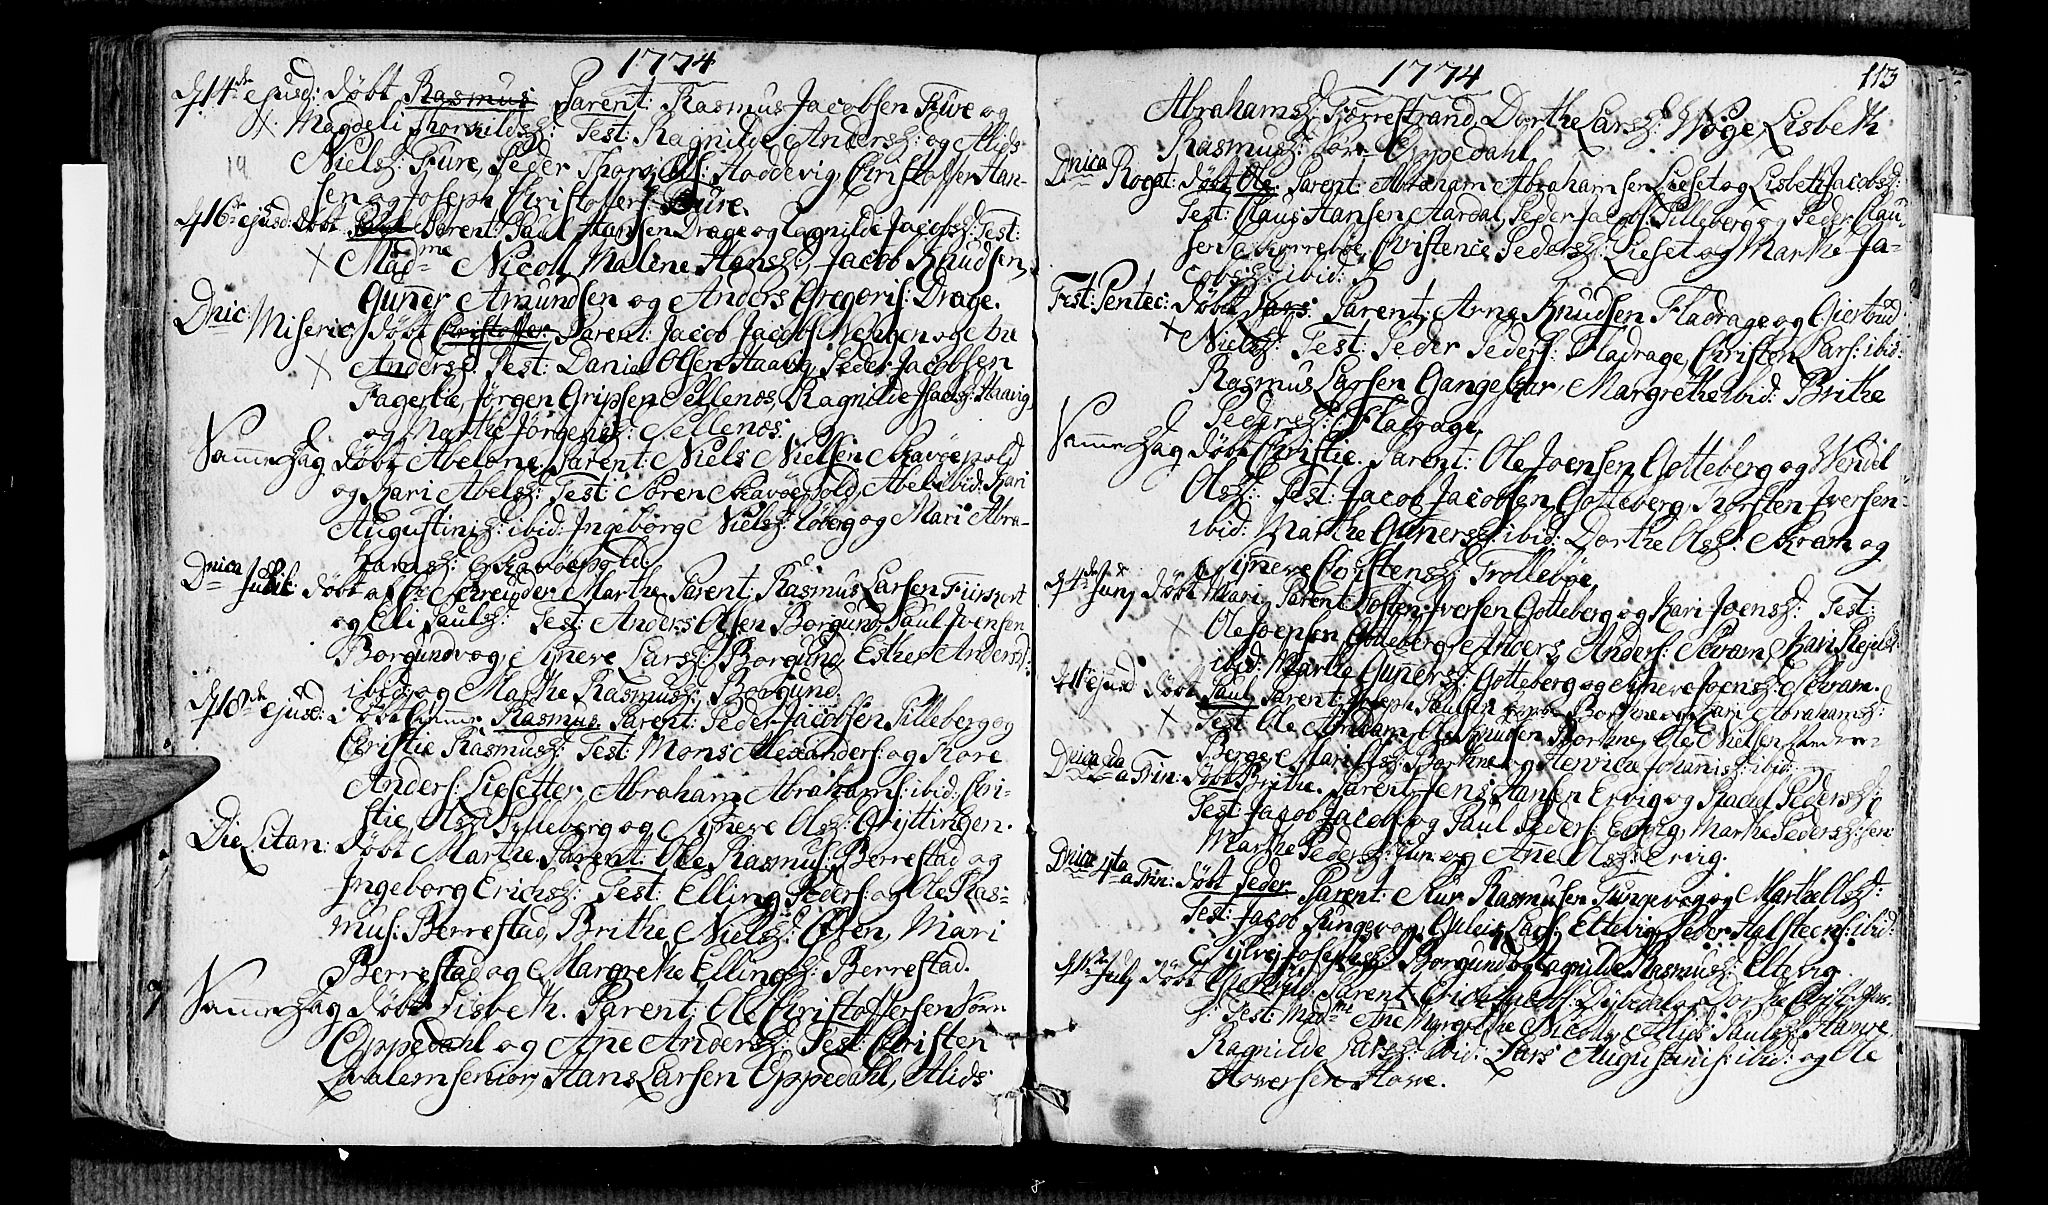 1774
d 14de ejusd: døbt Rasmus Parent: Rasmus Jacobsen Fure og
Magdeli Thorkildsd: Test: Ragnilde Andersd: og Alids
19 Nielsd: Fure, Peder Hoddevig, Christoffer Han-
sen og Joseph Christoffers: Fure.
d 16de ejusd: døbt Parent: Paul Hansen Drage og Ragnilde Jacobsd: Test:
Madme Nicoll, Malene Hansd:, Jacob Knudsen,
Guñer Amundsen og Anders Gregoris: Drage.
Dnic: Miseric: døbt Christoffer. Parent: Jacob Jacobs: og
Andersd: Test: Daniel Olsen Haavig, Peder Jacobsen
Fagerlie, Jørgen Gripsen Sellenes, Ragnilde Haavig
og Marthe Jørgensd: Sellenes.
Samme Dag døbt Abelone. Parent: Niels Nielsen Skavøepold
og Kari Abelsd: Test: Søren Skavøepold, Abel ibid: Kari
Augustinisd: ibid: Ingeborg Nielsd: Løberg og Mari Abra-
hamsd: Skavøepold.
Dnica Jubil: døbt af Hr Schreuder Marthe. Parent: Rasmus Larsen
og Eli Paulsd: Test: Anders Olsen Borgund, Paul Joensen
Borgundvog, Siñeve Larsd: Borgund, Esther Andersd:
ibid: og Marthe Rasmusd: Borgund.
d 18de ejusd: døbt Rasmus. Parent: Peder Jacobsen Lilleberg og
Christie Rasmusd: Test: Mons Alexanders: og Tore
Anders: Liesetter, Abraham Abrahams: ibid: Chri-
stie Olsd: Lylleberg og Siñeve Olsd: Gryttingen.
Die Litan: døbt Marthe. Parent: Ole Rasmus: Berrestad og
Ingeborg Erichsd: Test: Elling Peders: og Ole Ras-
mus: Berrestad, Brithe Nielsd: Osen, Mari
Berrestad og Margrethe Ellingsd: Berrestad.
Samme Dag døbt Lisbeth. Parent: Ole Christoffersen
Eppedahl og Ane Andersd: Test: Christen
Qvalem senior, Hans Larsen Eppedahl, Alids
1774
113
Abrahamsd: Tørrestrand, Dorthe Larsd: Woge, Lisbeth
Rasmusd: Eppedahl.
Dnica Rogat: døbt Ole. Parent: Abraham Abrahamsen Lieset og Lisbeth Jacobsd:
Test: Claus Hansen Aardal, Peder Jacobs: Lilleberg og Peder Clau-
sen Christence Pedersd: Lieset og Marthe Ja-
cobsd: ibid:
Fest: Pentec: døbt Lars. Parent: Arne Knudsen Fladrage og Giertrud
Nielsd: Test: Peder Peders: Fladrage, Christen Lars: ibid:
Rasmus Larsen Gangelsør, Margrethe ibid: Brithe
Pedersd: Fladrage.
Samme Dag døbt Christie. Parent: Ole Joensen Gotteberg og Wendel
Olsd: Test: Jacob Jacobsen Gotteberg, Torsten Iversen
ibid: Marthe Gunersd: ibid: Dorthe Olsd: Skram og
Siñeve Christensd: Trollebøe.
d 4de Junj døbt Mari. Parent: Tosten Iversen Gotteberg og Kari Joensd: Test:
Ole Joensen Gotteberg, Anders Anders: Skram, Kari
ibid: Marthe Guñersd: Gotteberg og Siñeve Joensd: Skram.
d 11te ejusd døbt Paul. Parent: Joseph Paulsen Bortne og Kari Abrahamsd:
Test: Ole Bortne, Ole Nielsen
Berge, Mari Olsd: Bortne og Henrica Johanisd: ibid:
Dnica 2da a Trin: døbt Brithe. Parent: Jens Hansen Ervig og Rachel Pedersd:
Test: Jacob Jacobs: og Paul Peders: Ervig, Marthe Pedersd: sen:
Marthe Pedersd: Jun: og Ane Olsd: Ervig.
Dnica 4ta a Trin: døbt Peder. Parent: Rasmusen Tungevog og Marthe Olsd:
Test: Jacob Tungevog, Lars: Ettevig, Peder Halsteens: ibid:
Sylvej Josephsd: Borgund og Ragnilde Rasmusd: Ettevig
d Julj døbt Parent: Jacobs: Dybedal og Dorthe
Test: Madme Ane Margrethe Nicoll, Alids Paulsd: Hamre,
Ragnilde Larsd: ibid: Lars Augustinis: ibid: og Ole
Howersen Howe.